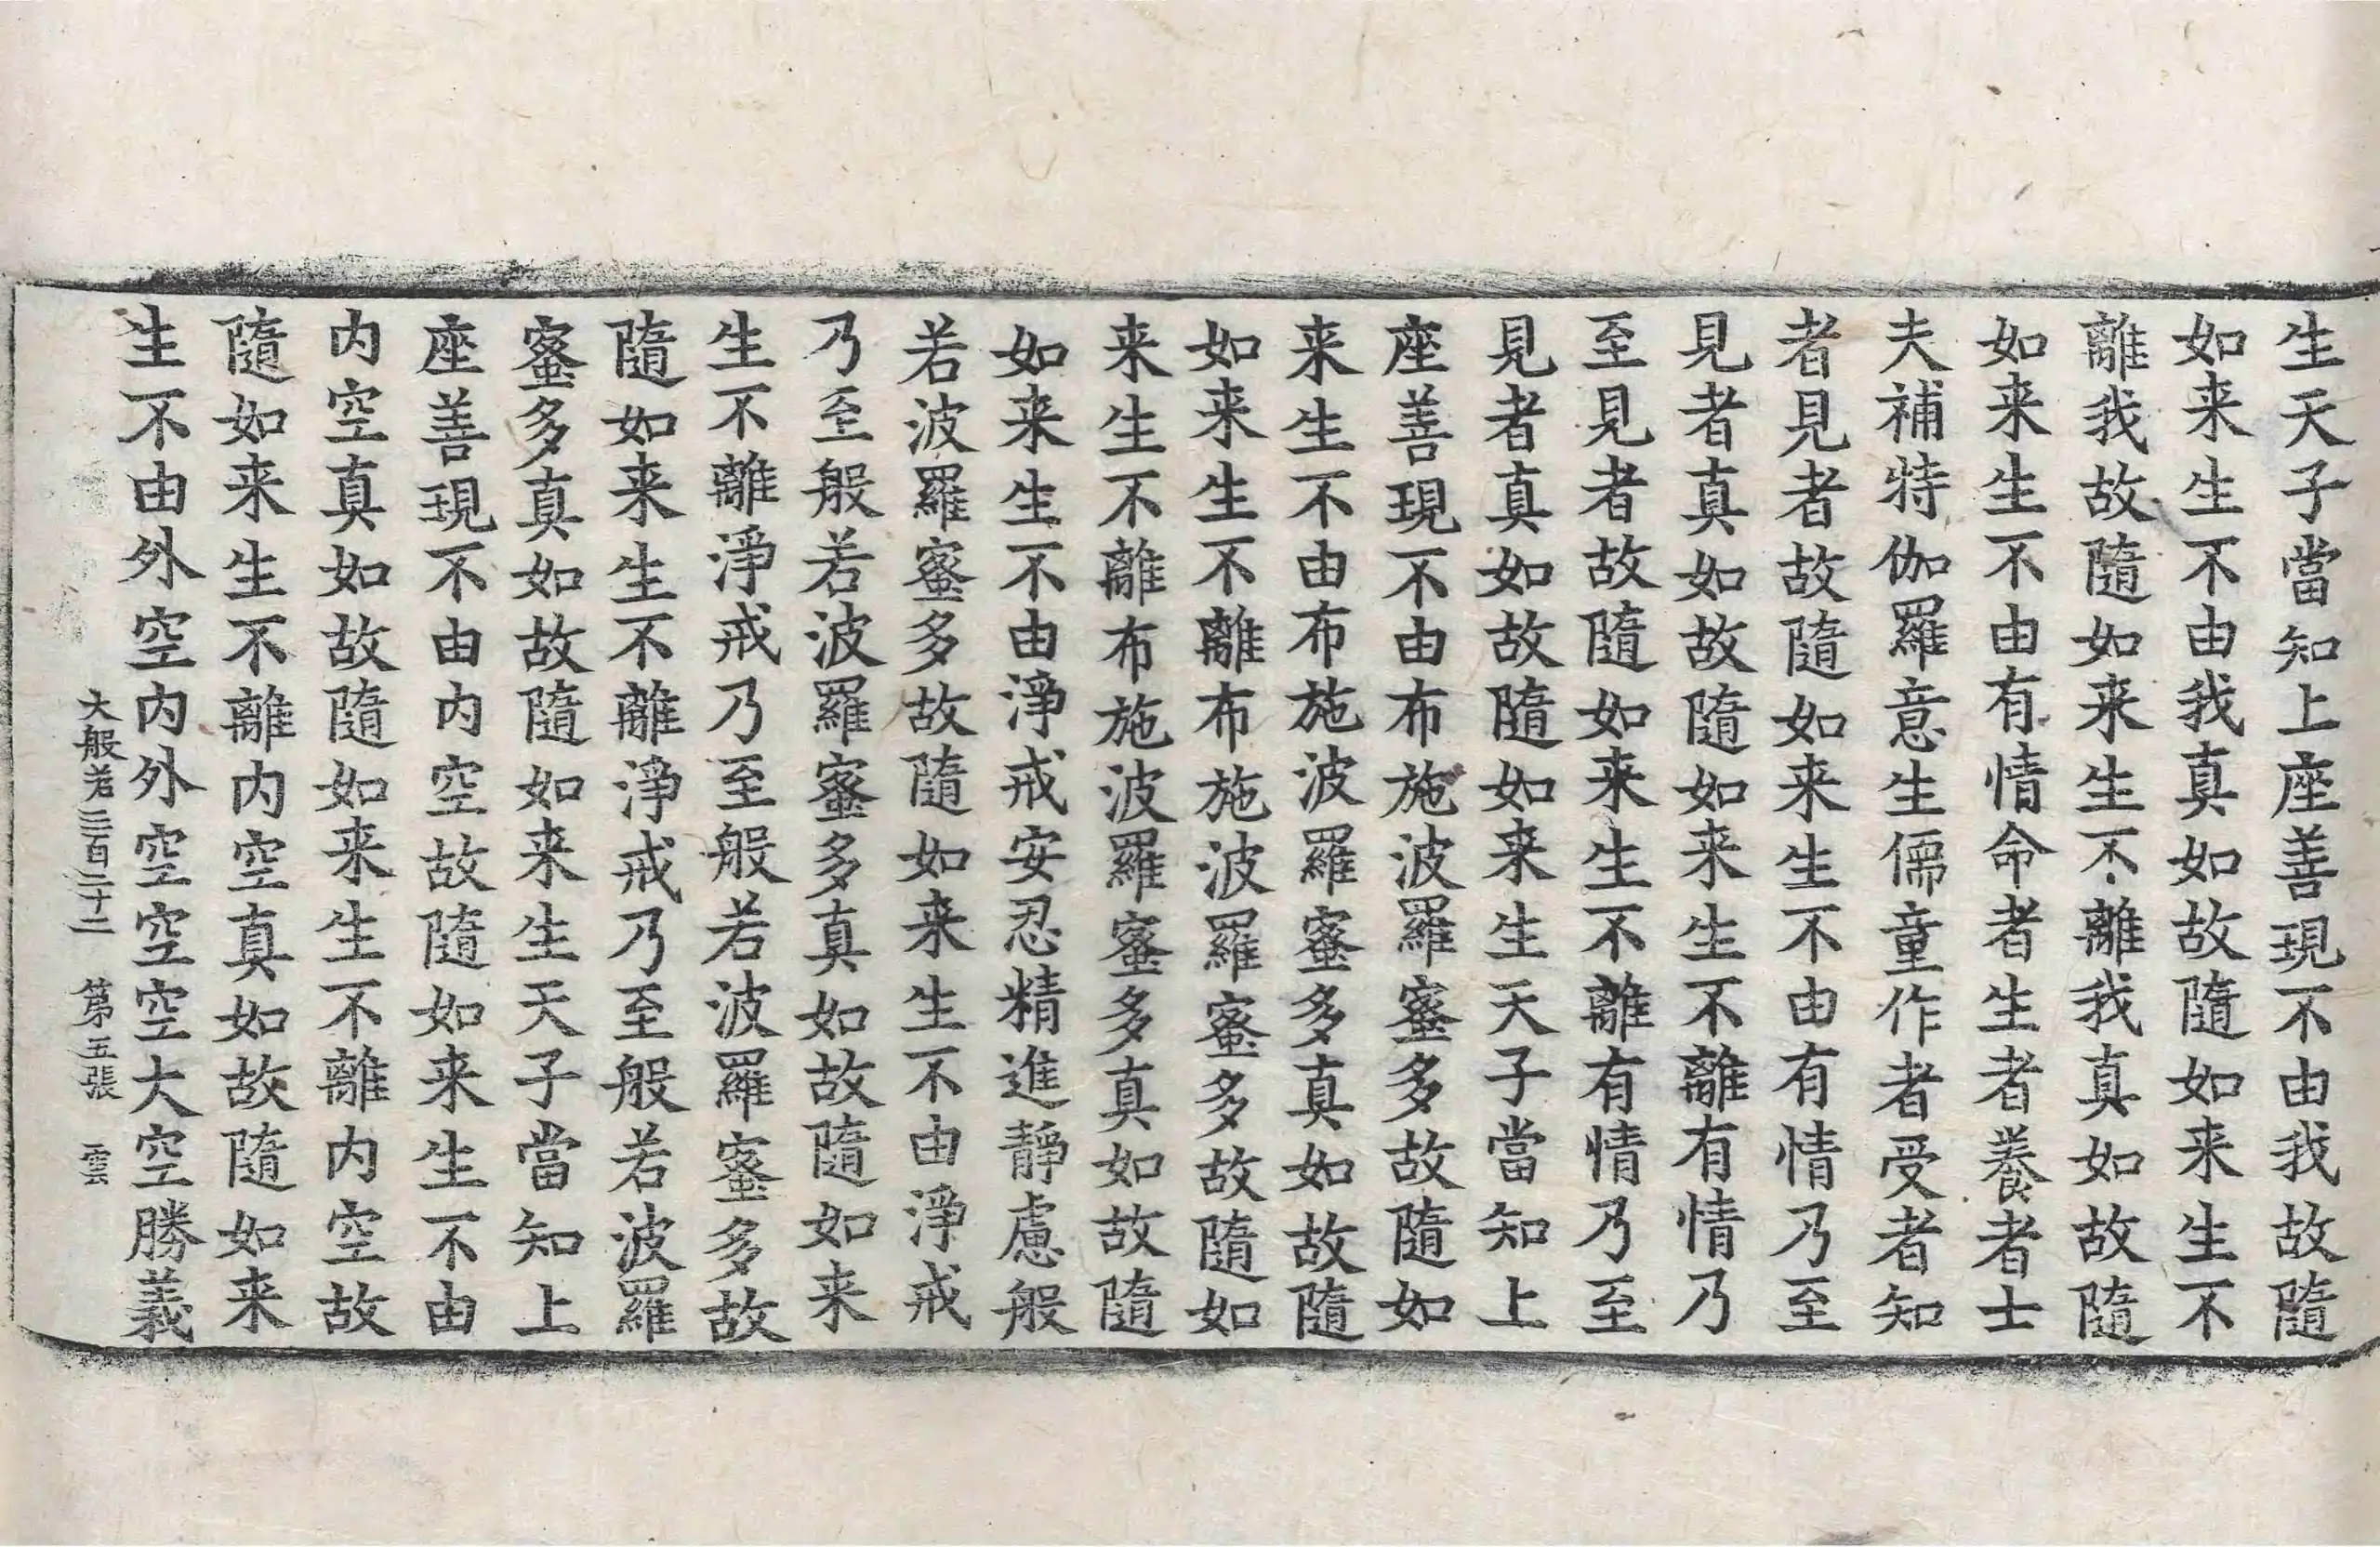 生天子當知上座善現不由我故隨
如来生不由我真如故隨如来生不
離我故隨如来生不離我真如故隨
如来生不由有情命者生者養者士
夫補特伽羅意生儒童作者受者知
者見者故隨如来生不由有情乃至
見者真如故隨如来生不離有情乃
至見者故隨如来生不離有情乃至
見者真如故隨如来生天子當知上
座善現不由布施波羅蜜多故隨如
来生不由布施波羅蜜多真如故隨
如来生不離布施波羅蜜多故隨如
来生不離布施波羅蜜多真如故隨
如来生不由淨戒安忍精進靜慮般
若波羅蜜多故隨如来生不由淨戒
乃至般若波羅蜜多真如故隨如来
生不離淨戒乃至般若波羅蜜多故
隨如来生不離淨戒乃至般若波羅
蜜多真如故隨如来生天子當知上
座善現不由内空故隨如来生不由
内空真如故隨如来生不離内空故
隨如来生不離内空真如故隨如来
生不由外空内外空空空大空勝義
大般若三百二十二 第五張 雲